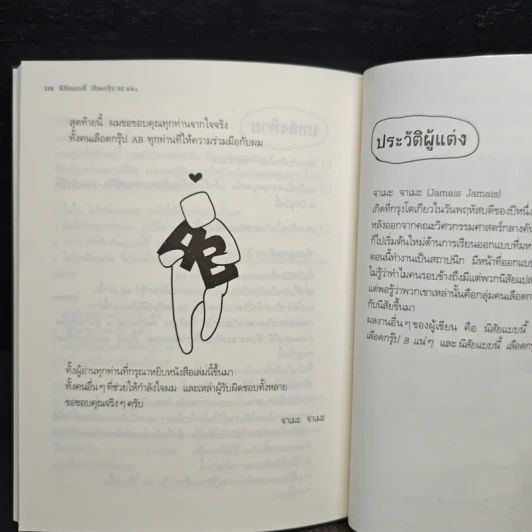 116 นิสัยแบบนี้ เลือดกรุ๊ป AB แน่ๆ
สุดท้ายนี้ ผมขอขอบคุณทุกท่านจากใจจริง
ทั้งคนเลือดกรุ๊ป AB ทุกท่านที่ให้ความร่วมมือกับผม
AB
ทั้งผู้อ่านทุกท่านที่กรุณาหยิบหนังสือเล่มนี้ขึ้นมา
ทั้งคนอื่นๆ ที่ช่วยให้กำลังใจผม และเหล่าผู้รับผิดชอบทั้งหลาย
ขอขอบคุณจริงๆ ครับ
จาเมะ จาเมะ
ประวัติผู้แต่ง
จาเมะ จาเมะ (Jamais Jamais)
เกิดที่กรุงโตเกียวในวันพฤหัสบดีของปีหนึ่ง
หลังออกจากคณะวิศวกรรมศาสตร์กลางคัน
ก็ไปเริ่มต้นใหม่ด้านการเรียนออกแบบที่มหา
ตอนนี้ทำงานเป็นสถาปนิก มีหน้าที่ออกแบบ
ไม่รู้ว่าทำไมคนรอบข้างถึงมีแต่พวกนิสัยแปล
แต่พอรู้ว่าพวกเขาเหล่านั้นคือกลุ่มคนเลือดก
กับนิสัยขึ้นมา
ผลงานอื่นๆ ของผู้เขียน คือ นิสัยแบบนี้
เลือดกรุ๊ป B แน่ๆ และนิสัยแบบนี้ เลือดก